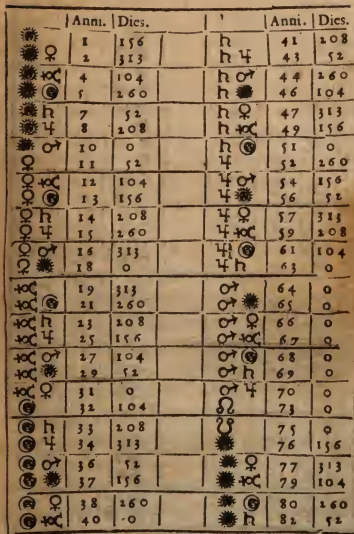 Anni. | Dies. | Anni. | Dies.
☉ 1 156 ♄ 41 208
☉ ♀ 2 313 ♄ ♃ 43 52
☉ ☿ 4 104 ♄ ♂ 44 260
☉ ☽ 5 260 ♄ ☉ 46 104
☉ ♄ 7 52 ♄ ♀ 47 313
☉ ♃ 8 208 ♄ ☿ 49 156
☉ ♂ 10 0 ♄ ☽ 51 0
♀ 11 52 ♃ 52 260
♀ ☿ 12 104 ♃ ♂ 54 156
♀ ☽ 13 156 ♃ ☉ 56 52
♀ ♄ 14 208 ♃ ♀ 57 313
♀ ♃ 15 260 ♃ ☿ 59 208
♀ ♂ 16 313 ♃ ☽ 61 104
♀ ☉ 18 0 ♃ ♄ 63 0
☿ 19 313 ♂ 64 0
☿ ☽ 21 260 ♂ ☉ 65 0
☿ ♄ 23 208 ♂ ♀ 66 0
☿ ♃ 25 156 ♂ ☿ 67 0
☿ ♂ 27 104 ♂ ☽ 68 0
☿ ☉ 29 52 ♂ ♄ 69 0
☿ ♀ 31 0 ♂ ♃ 70 0
☽ 32 104 ☊ 73 0
☽ ♄ 33 208 ☋ 75 0
☽ ♃ 34 313 ☉ 76 156
☽ ♂ 36 52 ☉ ♀ 77 313
☽ ☉ 37 156 ☉ ☿ 79 104
☽ ♀ 38 260 ☉ ☽ 80 260
☽ ☿ 40 0 ☉ ♄ 82 52